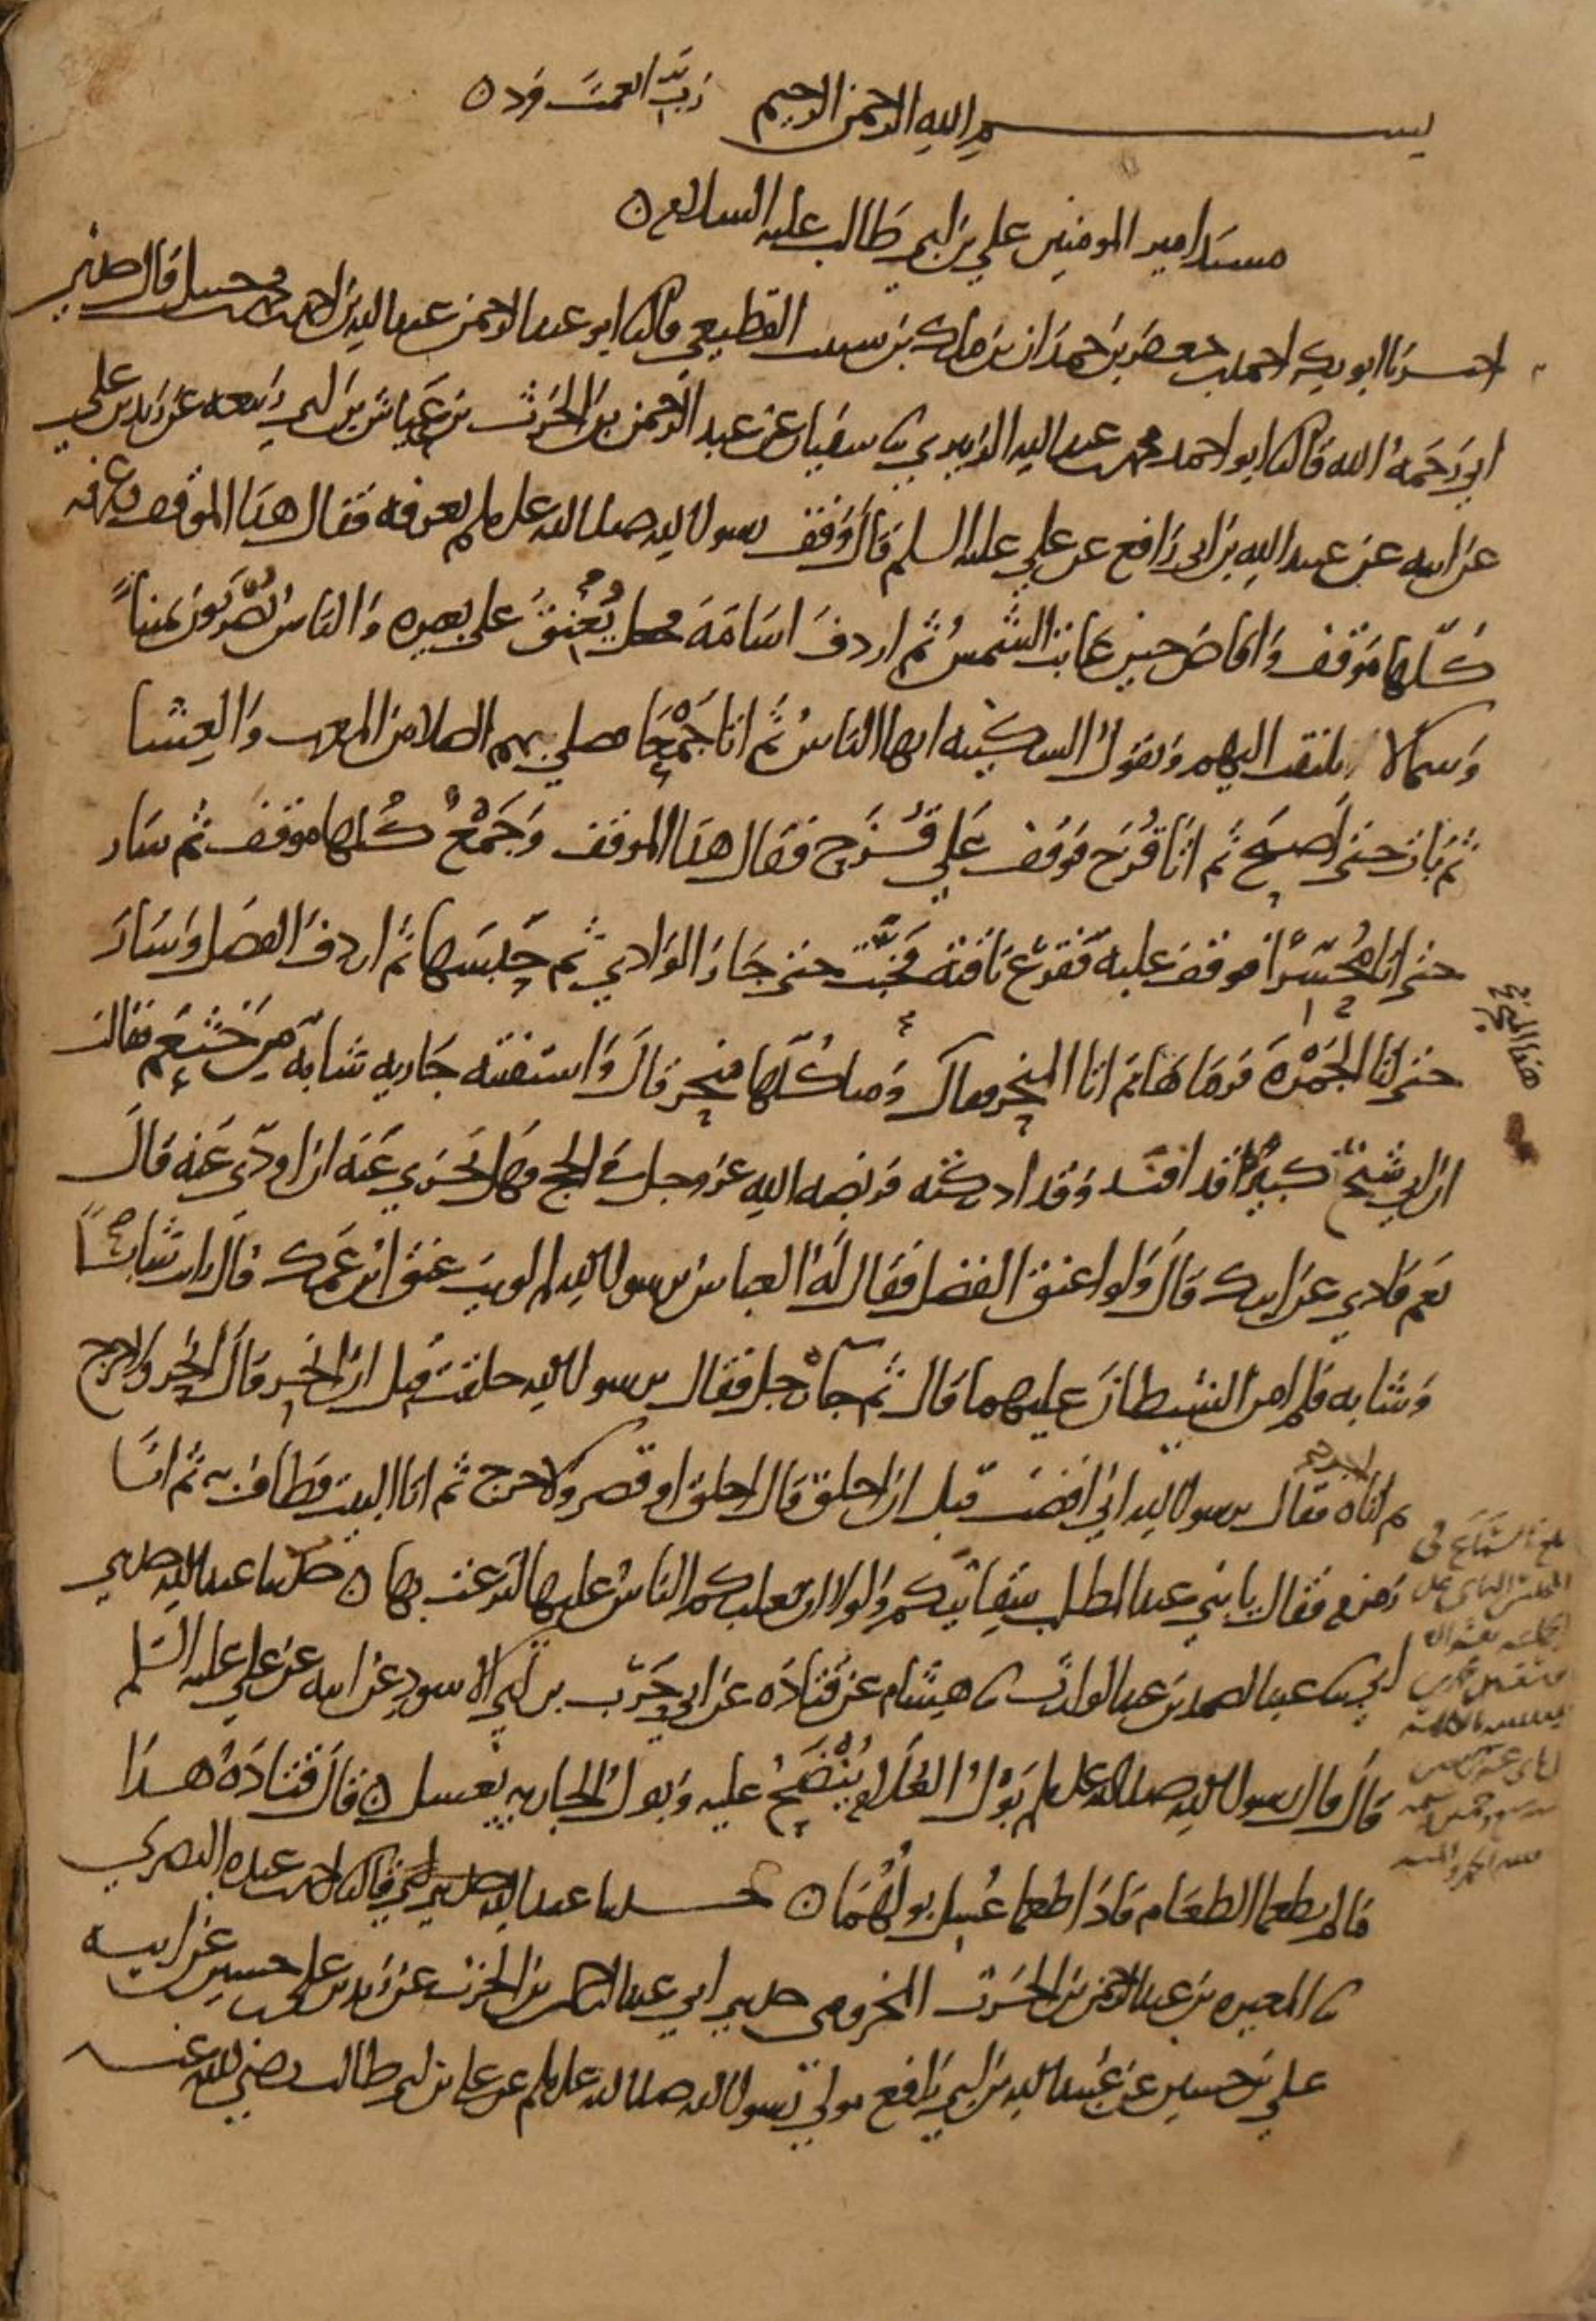 بسم الله الرحمن الرحيم رب انعمت فزد
مسند امير المومنين علي بن ابي طالب عليه السلام
اخبرنا ابو بكر احمد بن جعفر بن حمدان بن مالك بن القطيعي قال ثنا ابو عبد الرحمن عبد الله بن احمد بن محمد بن حنبل قال حدثني
ابي رَحمَهُ الله قال ثنا ابو احمد محمد بن عبد الله الزبيري ثنا سفيان عن عبد الرحمن بن الحرث بن عَيَّاش بن ابي ربيعه عن زيد بن علي
عن ابيه عن عبيد الله بن ابي رافع عن علي عليه السلم قال وَقَف رسول الله صلى الله عليه وسلم بعرفه فقال هذا الموقف وعرفه
كلّها مَوقف وَافاض حين غابت الشمسُ ثم اردفَ اسَامَهَ فجعل يُعْنِقُ على بعيره وَالناسُ يضربون يمينًا
وَشمالا يلتفت اليهم وَيقول السكينه ايها الناسُ ثم اتا جَمْعًا فصلى بهم الصلاتين المغرب وَالعِشا
ثم بَات حتى اَصبحَ ثم اتَا قُزَح فوَقف عَلى قُزَح فقال هذا الموقف وَجَمْعٌ كُلها موقف ثم سَار
حتى اتا مُحَسِّرًا فوقف عليه فقرَع ناقته فخبَّت حتى جَازَ الوَادي ثم حَبسَها ثم اردفَ الفضل وَسَارَ
حتى اتا الجَمْرَهَ فرمَاهَا ثم اتا المنحر فقال هذا المنحر وَمنا كُلّها منحر قال وَاستفتته جَاريه شابه من خَثعَم فقالت
ان ابي شيخ كبير قد افند وَقد ادركته فريضه الله عز وجل في الحج فهل يجزي عَنه ان اودّي عَنه قالَ
نعم فادي عن ابيك قال وَلوا عنق الفضل فقال لَهُ العباس يرسول الله لم لويتَ عنق ابن عَمك قال رايت شابًا
وَشابه فلم امن الشيطانَ عليهما قال ثم جآه رجل فقال يرسول الله حلقت قبل ان انحر قال انحر ولا حرج
ثم اتاه اخر فقال يرسول الله اني افضتُ قبل ان احلق قال احلق او قصر ولا حرج ثم اتا البيت فطاف به ثم اتا
زَمزم فقال يا بني عبد المطلب سقايتكم وَلولا ان يغلبكم الناسُ عليها لنزعت بها حدثنا عبد الله حدثني
ابي ثنا عبد الصمد بن عبد الوارث ثنا هشام عن قتادَه عن ابي حَرْب بن ابي الاسود عن ابيه عن علي عليه السلم
قال قال رسول الله صلى الله عليه وسلم بَوْلُ الغُلَامِ يُنْضَحُ عليه وَبول الجاريه يغسل قال قتادَهُ هذا
ما لم يطعما الطعَام فاذَا طعما غُسِل بولُهُمَا حدثنا عبد الله حدثني ابي قال ثنا احمد بن عبده البصري
ثنا المغيره بن عبد الرحمن بن الحرث المخزومي حدثني ابي عبد الرحمن بن الحرث عن زيد بن علي بن حسين عن ابيه
علي بن حسين عن عُبيد الله بن ابي رافع مولى رسول الله صلى الله عليه وسلم عن علي بن ابي طالب رضي الله عنه
هذا المنحر
بلغ السَّمَاع في